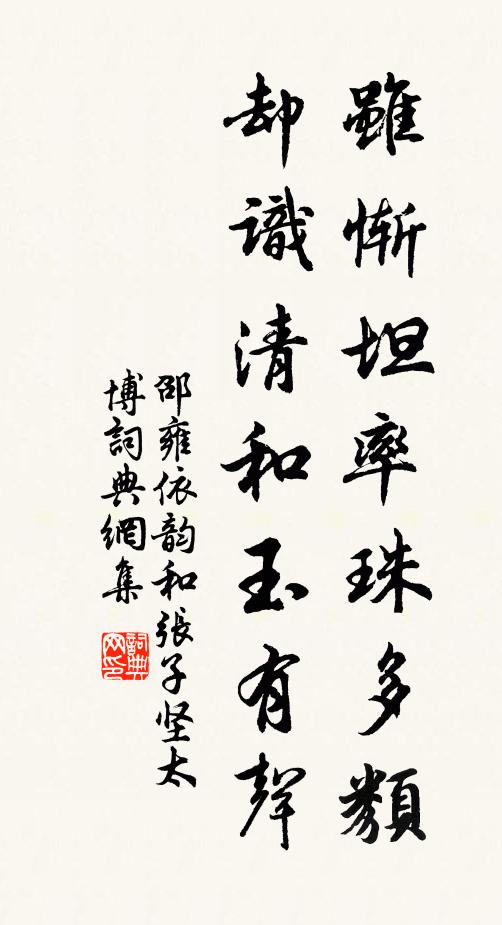 雖慚坦率珠多纇
却識清和玉有聲
邵雍依韵和張子坚太
博詞典網集
詞典
网印